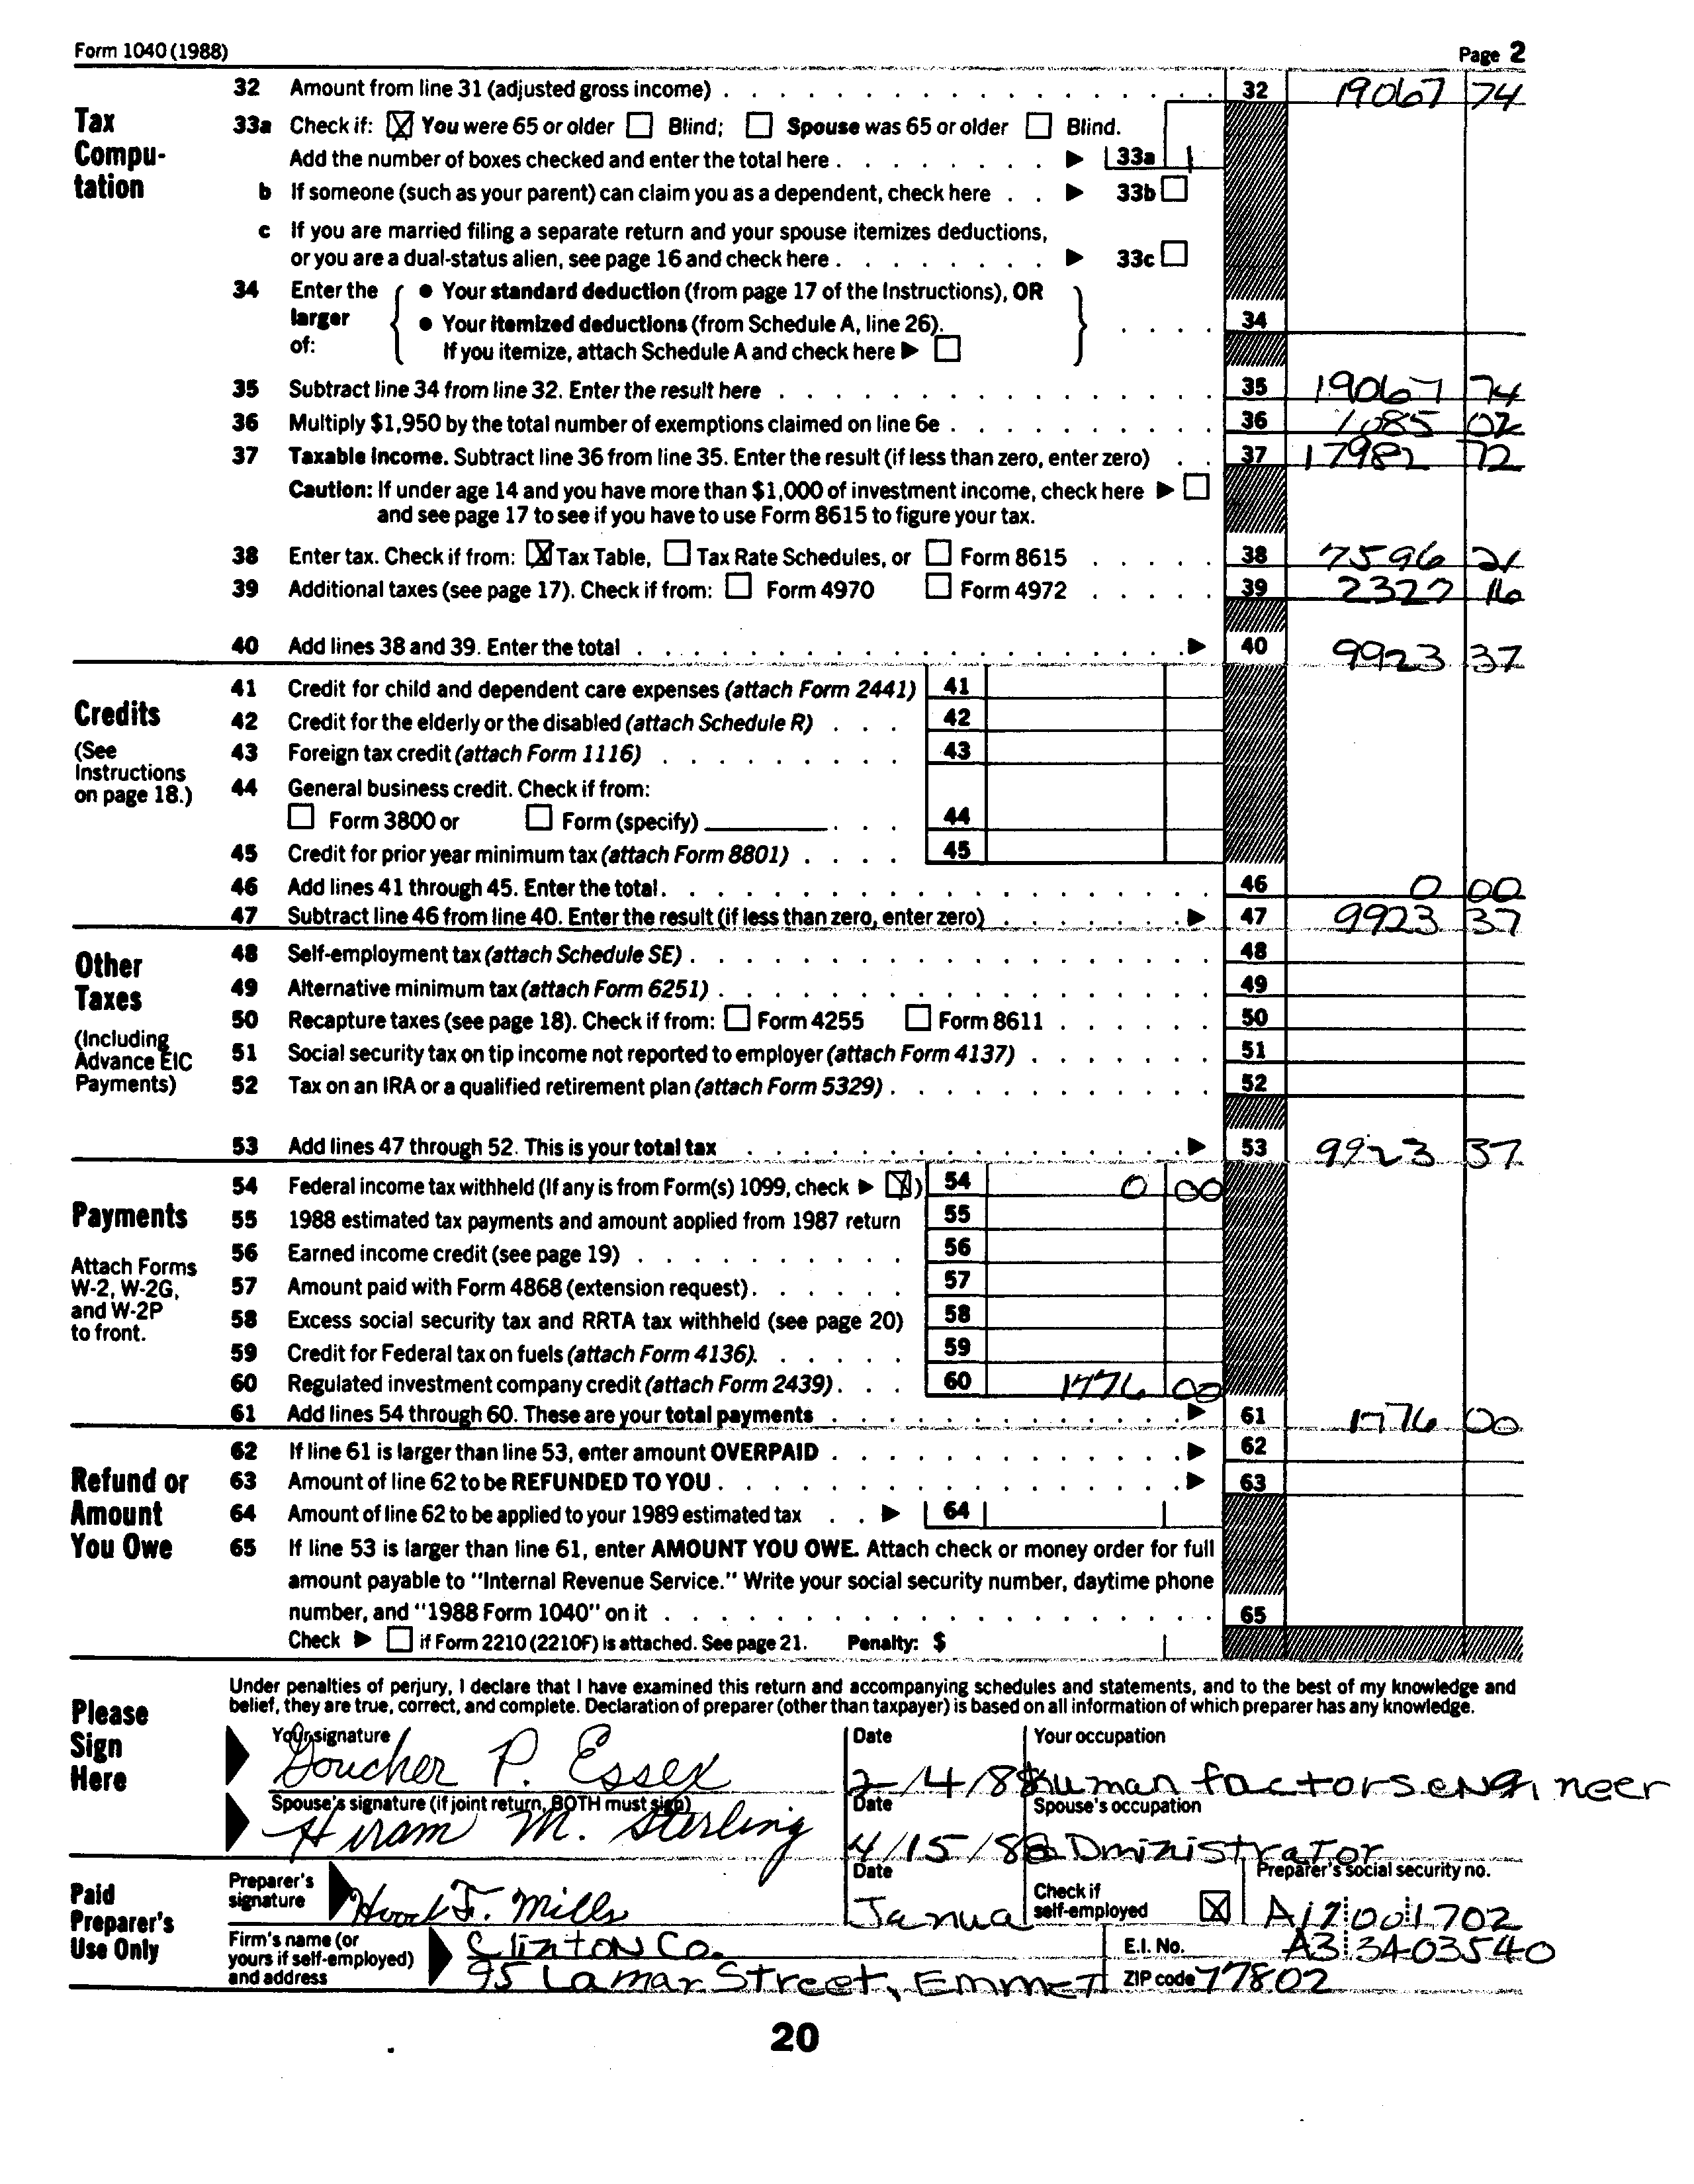 Form 1040 (1988) Page 2
Tax Computation
32 Amount from line 31 (adjusted gross income) 32 19067 74
33a Check if: ☒ You were 65 or older ☐ Blind; ☐ Spouse was 65 or older ☐ Blind.
Add the number of boxes checked and enter the total here ▶ 33a 1
b If someone (such as your parent) can claim you as a dependent, check here ▶ 33b ☐
c If you are married filing a separate return and your spouse itemizes deductions,
or you are a dual-status alien, see page 16 and check here ▶ 33c ☐
34 Enter the larger of: • Your standard deduction (from page 17 of the Instructions), OR
• Your itemized deductions (from Schedule A, line 26). 34
If you itemize, attach Schedule A and check here ▶ ☐
35 Subtract line 34 from line 32. Enter the result here 35 19067 74
36 Multiply $1,950 by the total number of exemptions claimed on line 6e 36 1085 02
37 Taxable income. Subtract line 36 from line 35. Enter the result (if less than zero, enter zero) 37 17982 72
Caution: If under age 14 and you have more than $1,000 of investment income, check here ▶ ☐
and see page 17 to see if you have to use Form 8615 to figure your tax.
38 Enter tax. Check if from: ☒ Tax Table, ☐ Tax Rate Schedules, or ☐ Form 8615 38 7596 21
39 Additional taxes (see page 17). Check if from: ☐ Form 4970 ☐ Form 4972 39 2327 16
40 Add lines 38 and 39. Enter the total ▶ 40 9923 37
Credits
(See Instructions on page 18.)
41 Credit for child and dependent care expenses (attach Form 2441) 41
42 Credit for the elderly or the disabled (attach Schedule R) 42
43 Foreign tax credit (attach Form 1116) 43
44 General business credit. Check if from:
☐ Form 3800 or ☐ Form (specify) 44
45 Credit for prior year minimum tax (attach Form 8801) 45
46 Add lines 41 through 45. Enter the total 46 0 00
47 Subtract line 46 from line 40. Enter the result (if less than zero, enter zero) ▶ 47 9923 37
Other Taxes
(Including Advance EIC Payments)
48 Self-employment tax (attach Schedule SE) 48
49 Alternative minimum tax (attach Form 6251) 49
50 Recapture taxes (see page 18). Check if from: ☐ Form 4255 ☐ Form 8611 50
51 Social security tax on tip income not reported to employer (attach Form 4137) 51
52 Tax on an IRA or a qualified retirement plan (attach Form 5329) 52
53 Add lines 47 through 52. This is your total tax ▶ 53 9923 37
Payments
Attach Forms W-2, W-2G, and W-2P to front.
54 Federal income tax withheld (If any is from Form(s) 1099, check ▶ ☒) 54 0 00
55 1988 estimated tax payments and amount applied from 1987 return 55
56 Earned income credit (see page 19) 56
57 Amount paid with Form 4868 (extension request) 57
58 Excess social security tax and RRTA tax withheld (see page 20) 58
59 Credit for Federal tax on fuels (attach Form 4136) 59
60 Regulated investment company credit (attach Form 2439) 60 1776 00
61 Add lines 54 through 60. These are your total payments ▶ 61 1776 00
Refund or Amount You Owe
62 If line 61 is larger than line 53, enter amount OVERPAID ▶ 62
63 Amount of line 62 to be REFUNDED TO YOU ▶ 63
64 Amount of line 62 to be applied to your 1989 estimated tax ▶ 64
65 If line 53 is larger than line 61, enter AMOUNT YOU OWE. Attach check or money order for full
amount payable to "Internal Revenue Service." Write your social security number, daytime phone
number, and "1988 Form 1040" on it 65
Check ▶ ☐ if Form 2210 (2210F) is attached. See page 21. Penalty: $
Please Sign Here
Under penalties of perjury, I declare that I have examined this return and accompanying schedules and statements, and to the best of my knowledge and
belief, they are true, correct, and complete. Declaration of preparer (other than taxpayer) is based on all information of which preparer has any knowledge.
Your signature Date Your occupation
Goucher P. Essex 2/4/88 human factors engineer
Spouse's signature (if joint return, BOTH must sign) Date Spouse's occupation
Hiram M. Sterling 4/15/88 aDministrator
Paid Preparer's Use Only
Preparer's signature Date Check if self-employed ☒ Preparer's social security no.
F. Mills Janua A17001702
Firm's name (or yours if self-employed) and address
Clinton Co. E.I. No. A33403540
95 Lamar Street, Emmet ZIP code 77802
20